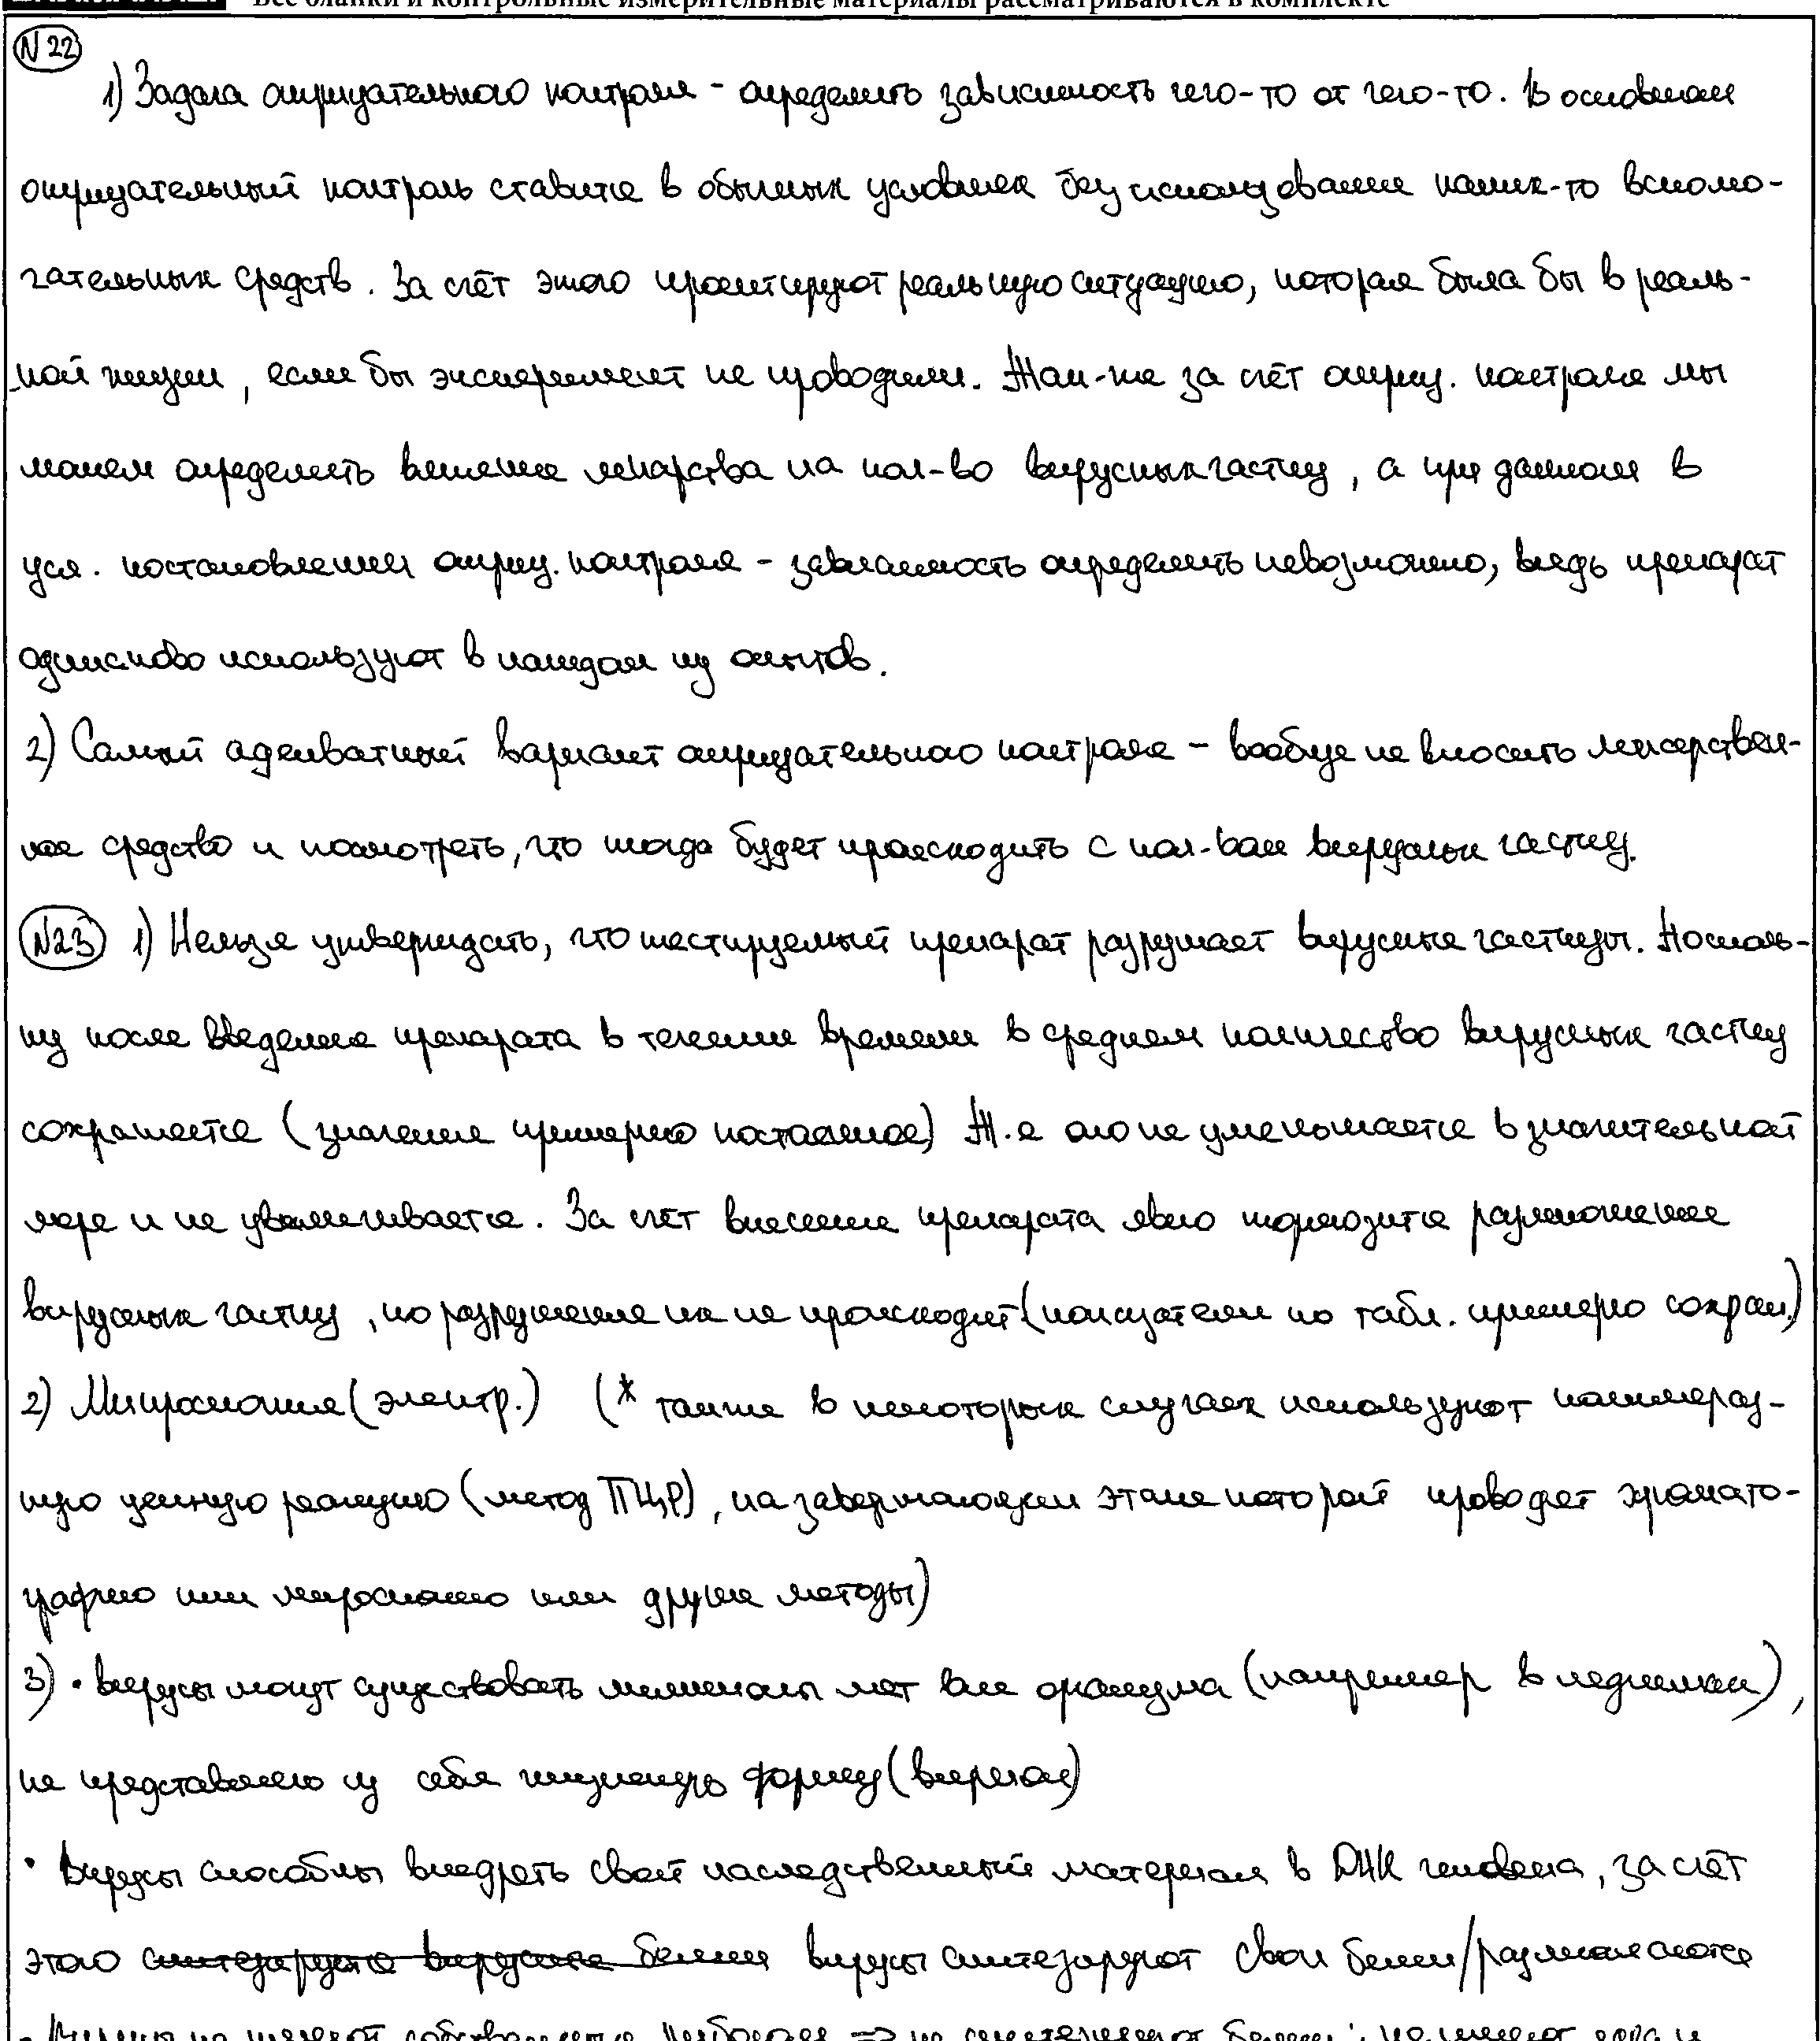 Все бланки и контрольные измерительные материалы рассматриваются в комплекте
N 22
1) Задача отрицательного контроля - определить зависимость чего-то от чего-то. В основном
отрицательный контроль ставится в обычных условиях без использования каких-то вспомо-
гательных средств. За счёт этого проектируют реальную ситуацию, которая была бы в реаль-
ной жизни, если бы эксперимент не проводили. Так-же за счёт отриц. контроля мы
можем определить влияние лекарства на кол-во вирусных частиц, а при данном в
усл. постановлении отриц. контроля - зависимость определить невозможно, ведь препарат
одинаково используют в каждом из опытов.
2) Самый адекватный вариант отрицательного контроля - вообще не вносить лекарствен-
ное средство и посмотреть, что тогда будет происходить с кол-вом вирусных частиц.
N23 1) Нельзя утверждать, что тестируемый препарат разрушает вирусные частицы. Посколь-
ку после введения препарата в течении времени в среднем количество вирусных частиц
сохраняется (значения примерно постоянное) Т.е оно не уменьшается в значительной
мере и не увеличивается. За счёт внесения препарата явно тормозится размножение
вирусных частиц, но разрушения их не происходит (показатели по табл. примерно сохран.)
2) Микроскопия (электр.) (* также в некоторых случаях используют полимераз-
ную цепную реакцию (метод ПЦР), на завершающем этапе которой проводят хромато-
графию или микроскопию или другие методы)
3) • вирусы могут существовать миллионы лет вне организма (например в ледниках),
не представляю из себя жизненную форму (вирион)
• Вирусы способны внедрять свой наследственный материал в ДНК человека, за счёт
этого синтезируются вирусные белки вирусы синтезируют свои белки/размножаются
• Вирусы не имеют собственных рибосом => не синтезируют белки; не имеют ядра и